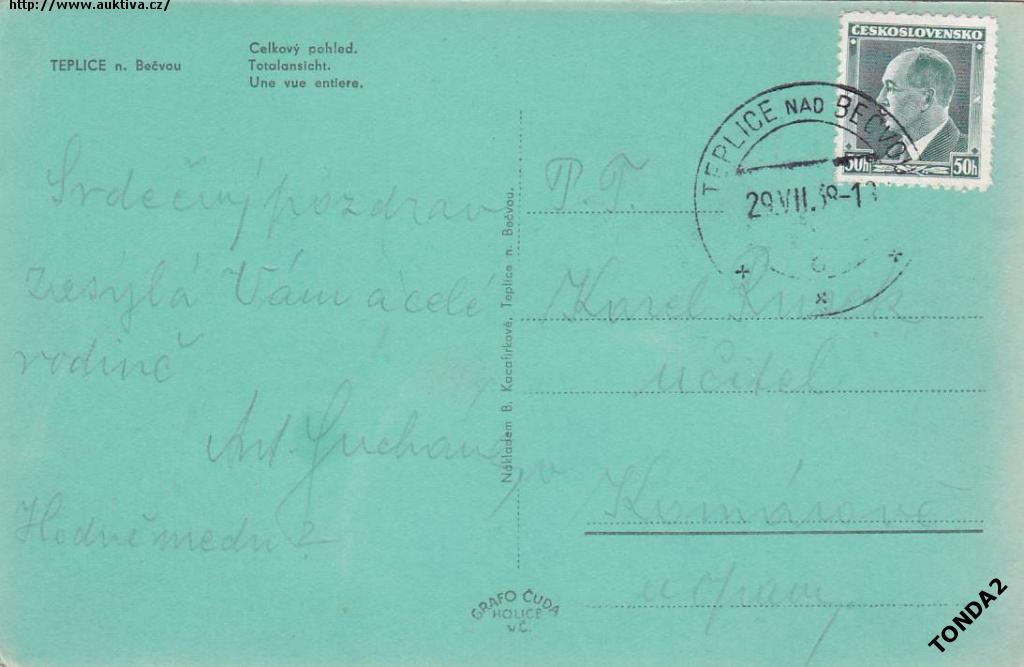 http://www.auktiva.cz/
TEPLICE n. Bečvou
Celkový pohled.
Totalansicht.
Une vue entiere.
ČESKOSLOVENSKO
50h 50h
TEPLICE NAD BEČVOU
29.VII.38-1
Srdečný pozdrav
zasýlá Vám a celé
rodině
Ant. Suchan
Hodně medu
Nákladem B. Kacafírkové, Teplice n. Bečvou.
P. T.
Karel
učitel
Komárově
u Opavy
GRAFO ČUDA
HOLICE
v Č.
TONDA2